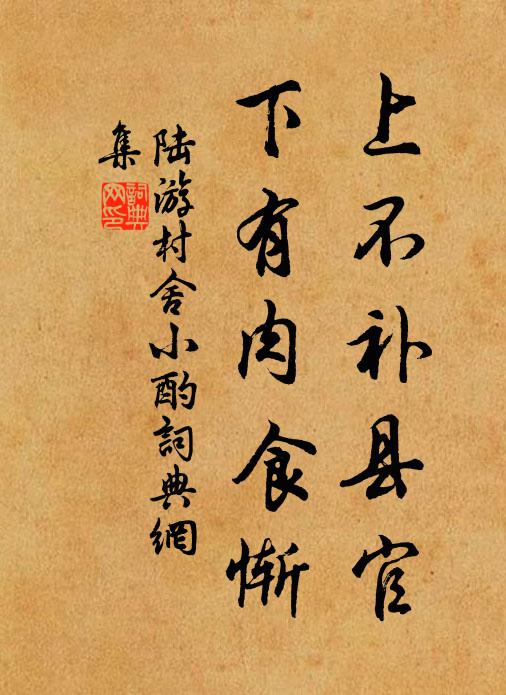 上不补县官
下有肉食惭
陆游村舍小酌詞典網
集
詞典网印